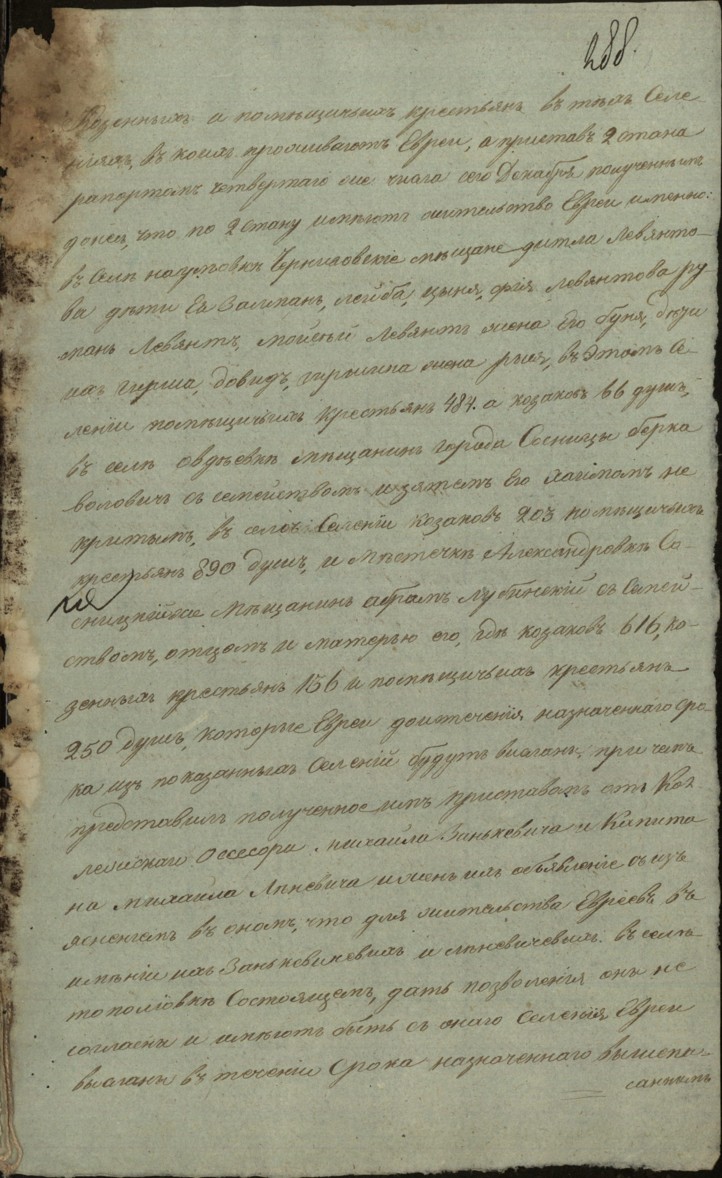 288.
Казенныхъ и помѣщичьихъ крестьянъ въ тѣхъ Селе-
ніяхъ, въ коихъ проживаютъ Евреи, а приставъ 2 стана
рапортомъ четвертаго же числа сего Декабря полученнымъ
донесъ, что по 2 стану имѣютъ жительство Евреи именно:
въ Селѣ Наумовкѣ Черниговскіе мѣщане Дитла Левянто-
ва дѣти Ея Залманъ, Лейба, Цыня, Фія Левянтова ру
манъ Левянтъ, Мойсѣй Левянтъ жена Его Буня, дѣти
ихъ Гирша, Довидъ, Гиршина жена Рися, въ Этомъ Се-
леніи помѣщичьихъ крестьянъ 484. а козаковъ 66 душъ,
въ селѣ Овдѣевкѣ мѣщанинъ города Сосницы Берка
Воловичъ съ семействомъ и зятемъ Его Хаґимомъ не
критымъ, въ семъ Селеніи Козаковъ 203 помѣщичьихъ
крестьянъ 890 душъ, и мѣстечкѣ Александровкѣ Со-
сницкій же мѣщанинъ Абрамъ Лубенскій съ Семей-
ствомъ, отцомъ и матерью его, гдѣ козаковъ 616, ка-
зенныхъ крестьянъ 156 и помѣщичьихъ крестьянъ
250 душъ, которые Евреи до истеченія назначеннаго сро
ка изъ показанныхъ Селеній будутъ высланы, при чемъ
представилъ полученное имъ приставомъ отъ Кол
лежскаго Ассесора Михайла Занькевича и Капита
на Михаила Линевича имѣнъ ихъ объявленіе съ изъ
ясненіемъ въ ономъ, что для жительства Евреевъ въ
имѣніи ихъ Занькевичевыхъ и Линевичевыхъ въ селѣ
Тополовкѣ Состоящемъ, дать позволенія они не
согласны и имѣютъ быть съ онаго Селенія Евреи
высланы въ теченіи Срока назначеннаго вышепи-
саннымъ